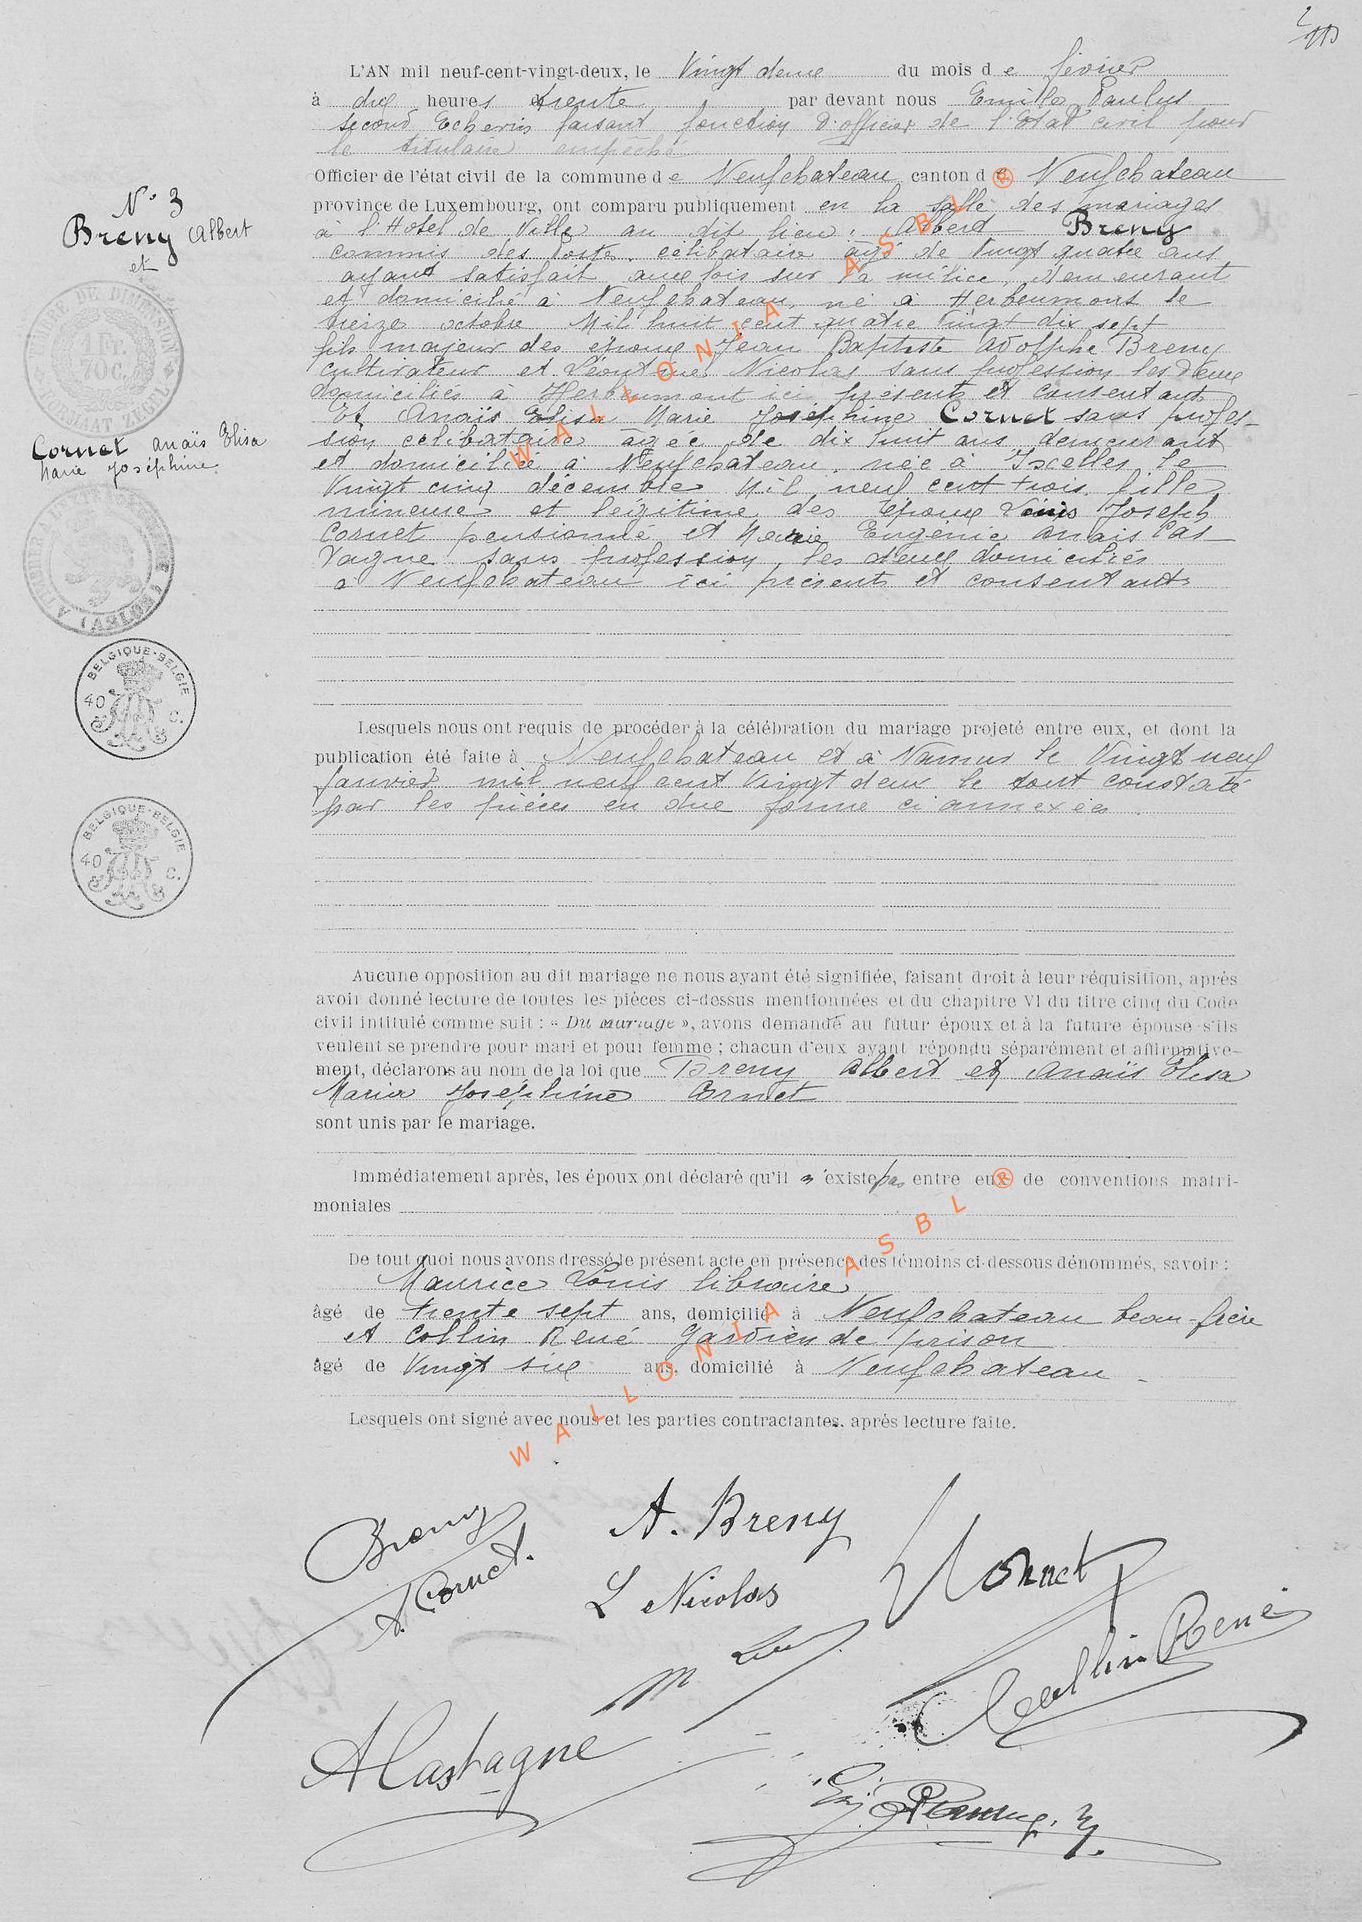 L'AN mil neuf-cent-vingt-deux, le Vingt deux du mois de février
à dix heures trente par devant nous Emile Paulus
second Echevin faisant fonction d'officier de l'Etat civil pour
le titulaire empêché
Officier de l'état civil de la commune de Neufchateau canton de Neufchateau
province de Luxembourg, ont comparu publiquement en la salle des mariages
à l'Hotel de Ville au dit lieu : Albert Breny
commis des Poste, célibataire âgé de Vingt quatre ans
ayant satisfait aux lois sur la milice, demeurant
et domicilié à Neufchateau, né à Herbeumont le
treize octobre Mil huit cent quatre Vingt dix sept
fils majeur des époux Jean Baptiste Adolphe Breny
cultivateur et Léontine Nicolas sans profession les deux
domiciliés à Herbeumont ici présents et consentant
Et Anaïs Elisa Marie Joséphine Cornet sans profes-
sion célibataire âgée de dix huit ans demeurant
et domiciliée à Neufchateau, née à Ixelles le
Vingt cinq décembre Mil neuf cent trois fille
mineure et légitime des Epoux Louis Joseph
Cornet pensionné et Marie Eugénie Anaïs Cas
tagne sans profession, les deux domiciliés
a Neufchateau ici présents et consentants
N° 3
Breny Albert
et
Cornet Anaïs Elisa
Marie Joséphine
1 Fr.
70 C.
(ARLON)
BELGIQUE-BELGIE
40 C.
BELGIQUE-BELGIE
40 C.
Lesquels nous ont requis de procéder à la célébration du mariage projeté entre eux, et dont la
publication été faite à Neufchateau et à Namur le Vingt neuf
Janvier mil neuf cent Vingt deux le tout constaté
par les pièces en due forme ci annexées
Aucune opposition au dit mariage ne nous ayant été signifiée, faisant droit à leur réquisition, après
avoir donné lecture de toutes les pièces ci-dessus mentionnées et du chapitre VI du titre cinq du Code
civil intitulé comme suit : « Du mariage », avons demandé au futur époux et à la future épouse s'ils
veulent se prendre pour mari et pour femme ; chacun d'eux ayant répondu séparément et affirmative-
ment, déclarons au nom de la loi que Breny Albert et Anaïs Elisa
Marie Joséphine Cornet
sont unis par le mariage.
Immédiatement après, les époux ont déclaré qu'il n'existe pas entre eux de conventions matri-
moniales
De tout quoi nous avons dressé le présent acte en présence des témoins ci-dessous dénommés, savoir :
Maurice Louis libraire
âgé de trente sept ans, domicilié à Neufchateau beau-frère
et Collin René gardien de prison
âgé de Vingt six ans, domicilié à Neufchateau
Lesquels ont signé avec nous et les parties contractantes, après lecture faite.
Breny A. Breny Cornet
A. Cornet. L Nicolas
Collin René
A Castagne
WALLONIA ASBL ®
WALLONIA ASBL ®